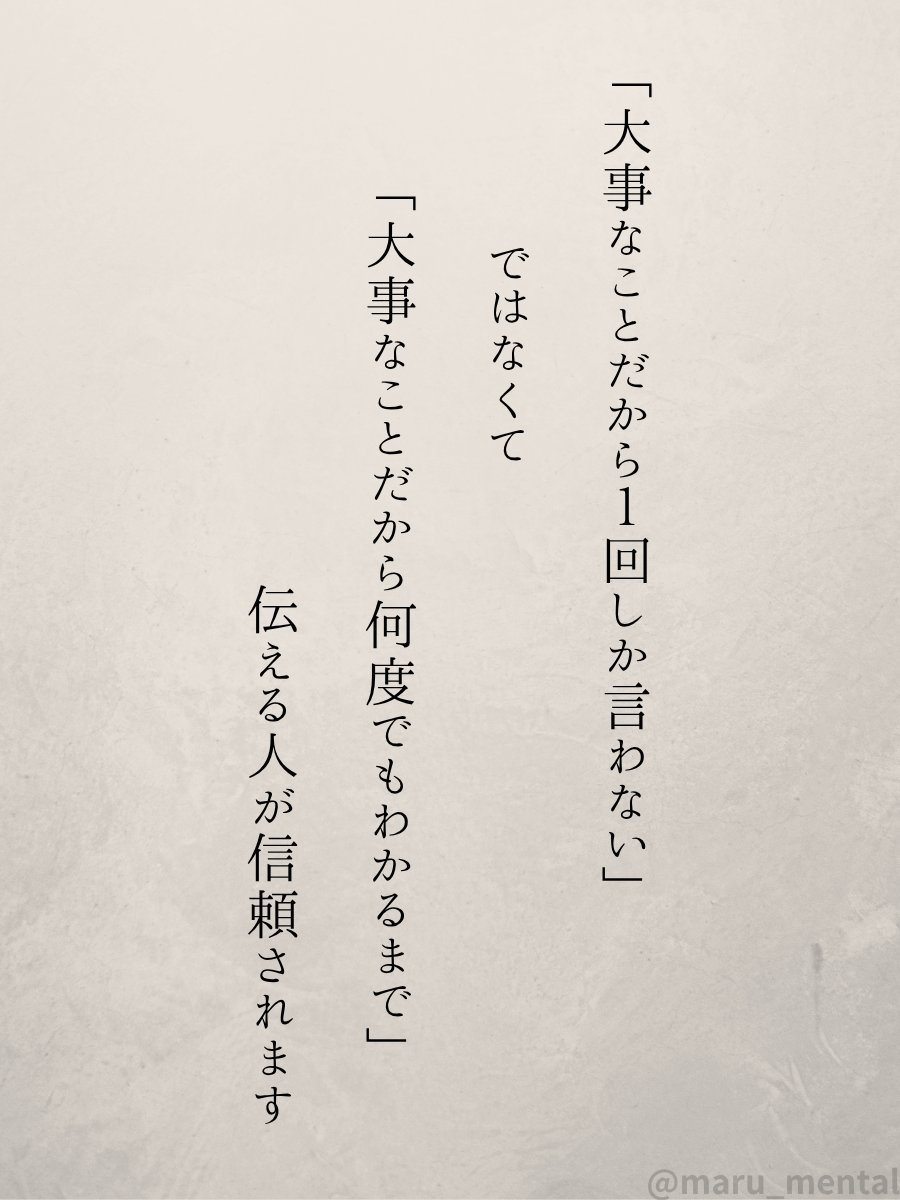 「大事なことだから1回しか言わない」
ではなくて
「大事なことだから何度でもわかるまで」
伝える人が信頼されます
@maru_mental